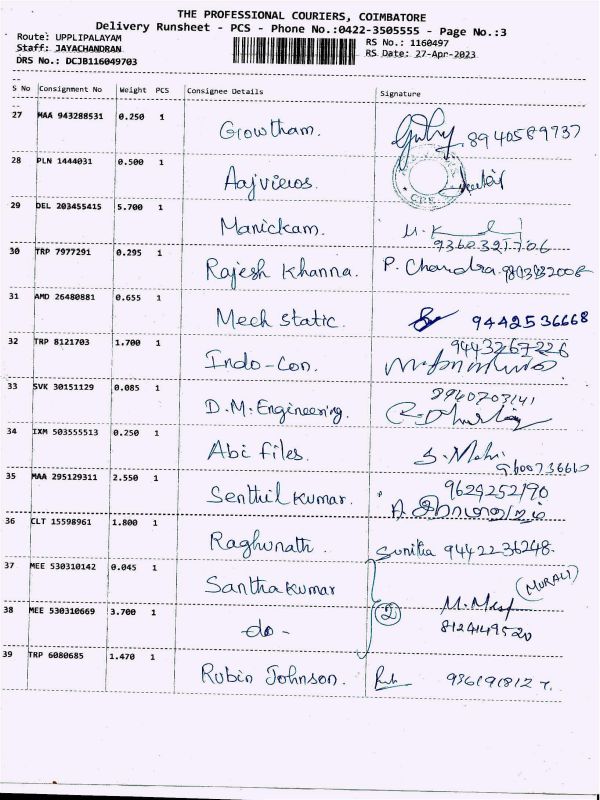 THE PROFESSIONAL COURIERS, COIMBATORE
Delivery Runsheet - PCS - Phone No.:0422-3505555 - Page No.:3
Route: UPPLIPALAYAM
RS No.: 1160497
Staff: JAYACHANDRAN
RS Date: 27-Apr-2023
DRS No.: DCJB116049703
S No Consignment No Weight PCS Consignee Details Signature
27 MAA 943288531 0.250 1 Gowtham. 8940589737
28 PLN 1444031 0.500 1 Aajviews.
29 DEL 203455415 5.700 1 Manickam. M.K
9360321706
30 TRP 7977291 0.295 1 Rajesh Khanna. P. Chandra.
31 AMD 26480881 0.655 1 Mech static. 9442536668
32 TRP 8121703 1.700 1 Indo-Con. 9443267226
33 SVK 30151129 0.085 1 D.M. Engineering. 8940703141
34 IXM 503555513 0.250 1 Abi files. S. Mohi
9600736610
35 MAA 295129311 2.550 1 Senthil Kumar. 9629252190
36 CLT 15598961 1.800 1 Raghunath. Sunitha 9442236248.
37 MEE 530310142 0.045 1 Santhakumar (MURALI)
38 MEE 530310669 3.700 1 -do- 2 8124149520
39 TRP 6080685 1.470 1 Rubin Johnson. 9361918127.